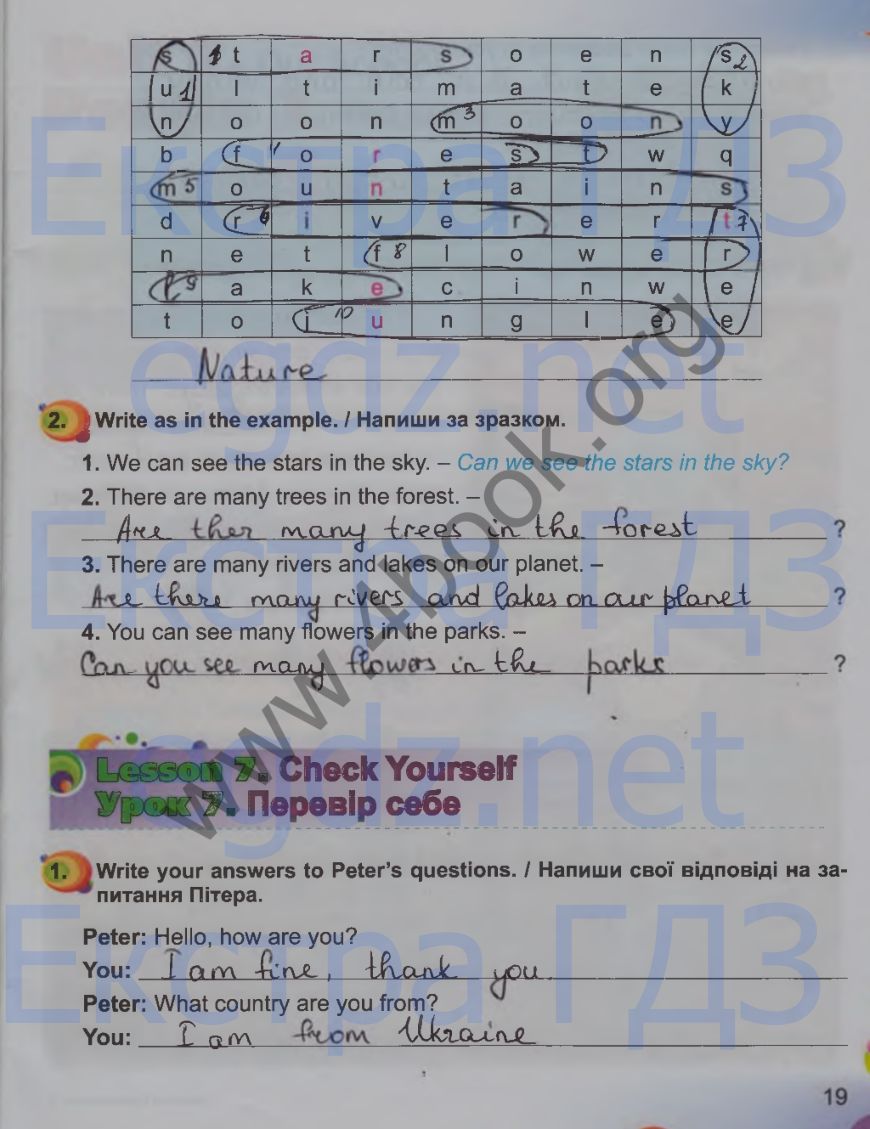 s 1 t a r s o e n s 2
u 1 l t i m a t e k
n o o n m 3 o o n y
b f 4 o r e s t w q
m 5 o u n t a i n s
d r 6 i v e r e r t 7
n e t f 8 l o w e r
l 9 a k e c i n w e
t o j 10 u n g l e e
Nature
2. Write as in the example. / Напиши за зразком.
1. We can see the stars in the sky. – Can we see the stars in the sky?
2. There are many trees in the forest. –
Are ther many trees in the forest ?
3. There are many rivers and lakes on our planet. –
Are there many rivers and lakes on our planet ?
4. You can see many flowers in the parks. –
Can you see many flowers in the parks ?
Lesson 7. Check Yourself
Урок 7. Перевір себе
1. Write your answers to Peter's questions. / Напиши свої відповіді на за-
питання Пітера.
Peter: Hello, how are you?
You: I am fine, thank you.
Peter: What country are you from?
You: I am from Ukraine
19
Екстра ГДЗ
egdz.net
Екстра ГДЗ
egdz.net
Екстра ГДЗ
www.4book.org